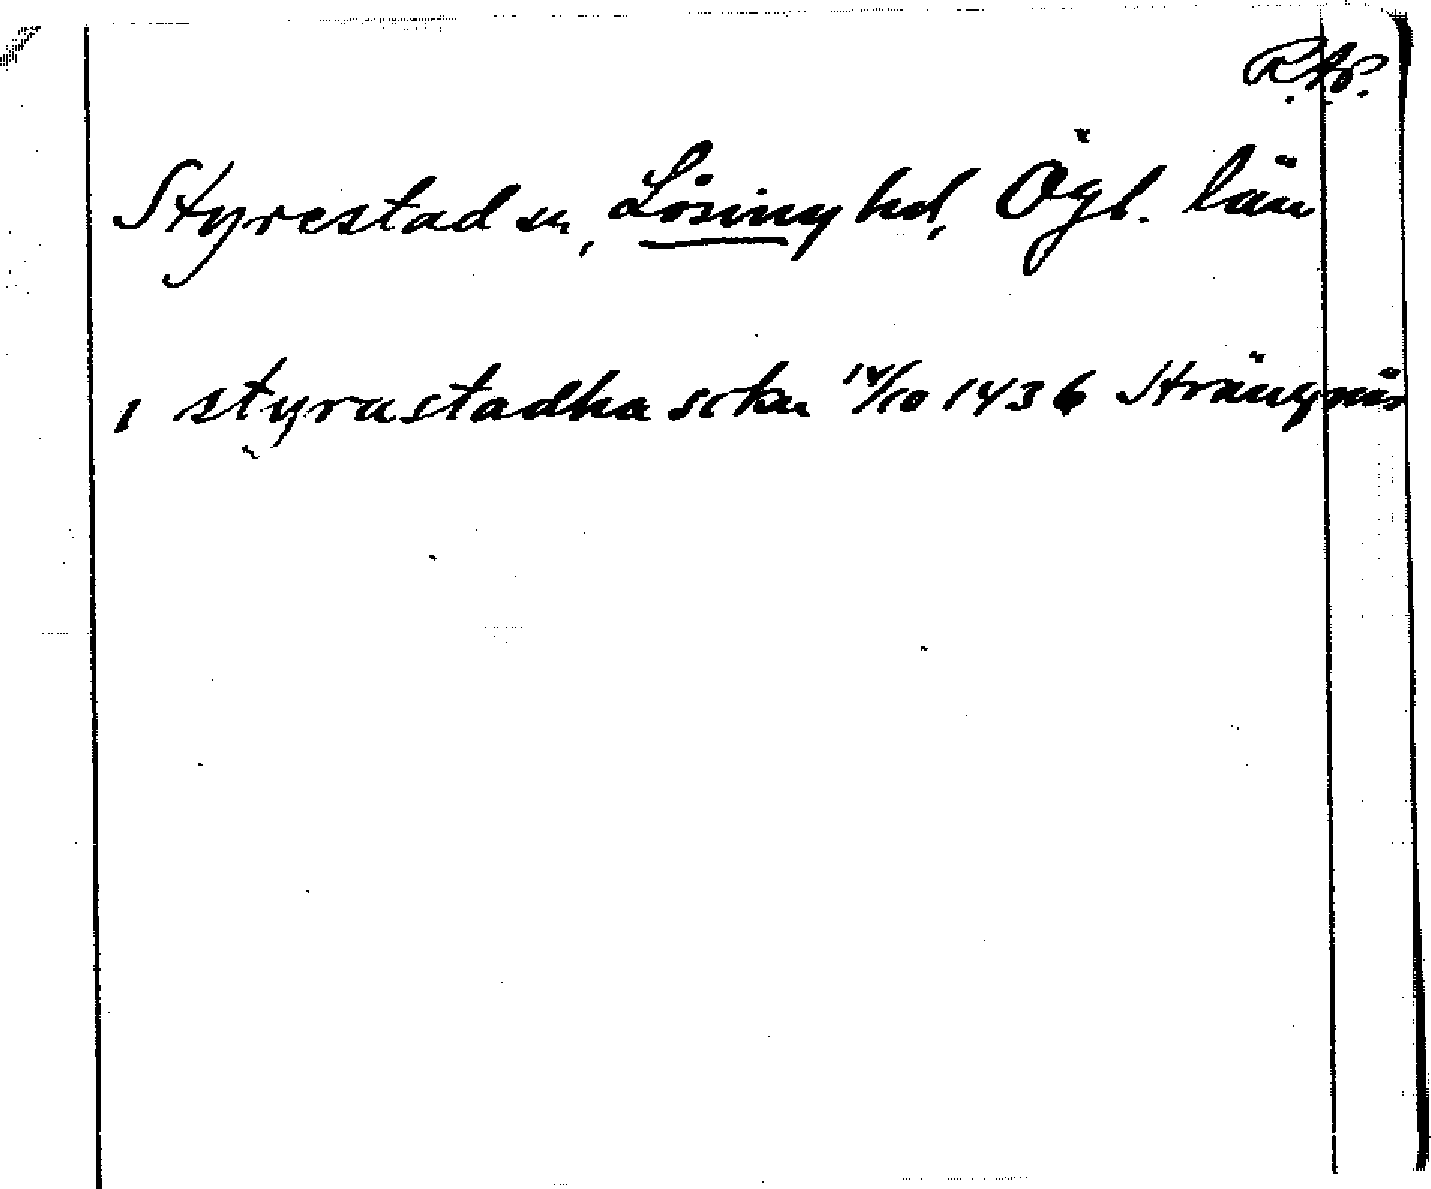 R.Ap.
Styrestad sn, Lösing hd, Ögl. län
i styrastadha sokn 14/10 1436 Strängnäs